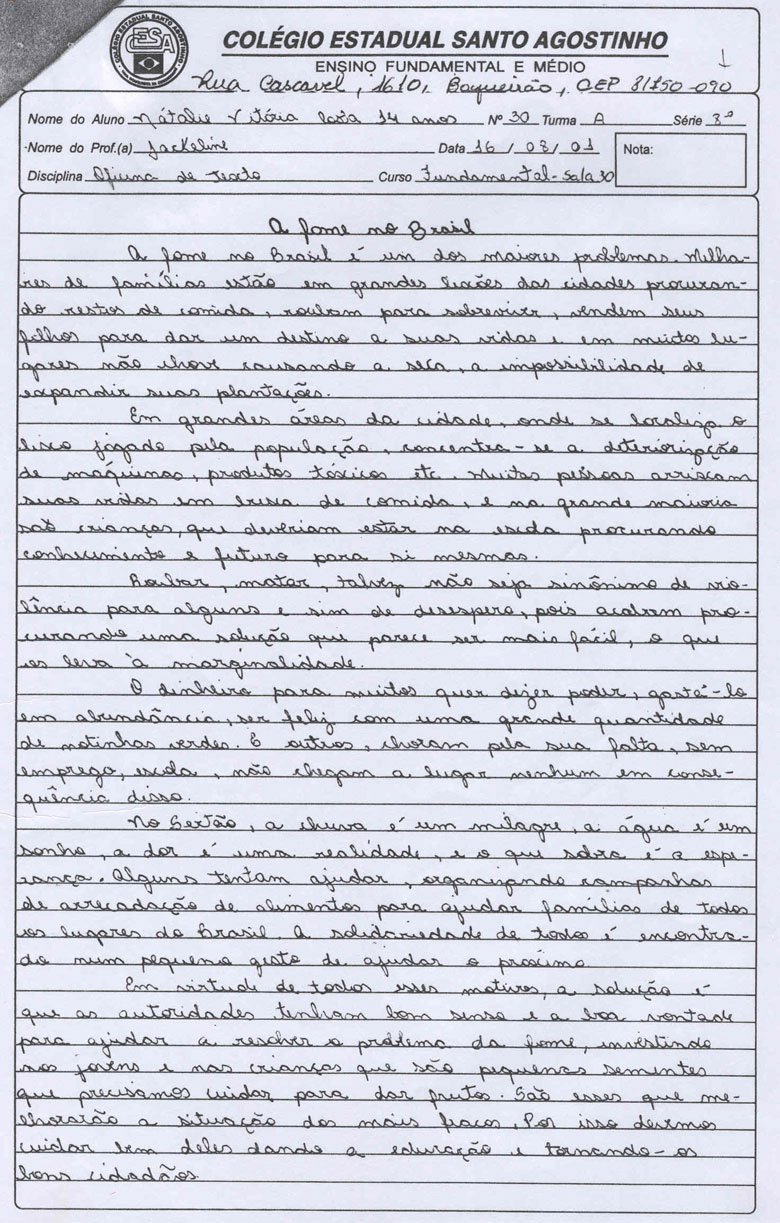 COLÉGIO ESTADUAL SANTO AGOSTINHO
CESA
COLÉGIO ESTADUAL SANTO AGOSTINHO
ENSINO FUNDAMENTAL E MÉDIO
1
Rua Cascavel, 1610, Boqueirão, CEP 81750-090
Nome do Aluno Nátalie Vitória 14 anos Nº 30 Turma A Série 8ª
Nome do Prof.(a) Jackeline Data 16/08/01 Nota:
Disciplina Oficina de Texto Curso Fundamental-Sala 30
A fome no Brasil
A fome no Brasil é um dos maiores problemas. Milha-
res de famílias estão em grandes lixões das cidades procuran-
do restos de comida, roubam para sobreviver, vendem seus
filhos para dar um destino a suas vidas e em muitos lu-
gares não chove causando a seca, a impossibilidade de
expandir suas plantações.
Em grandes áreas da cidade, onde se localiza o
lixo jogado pela população, concentra-se a deteriorização
de máquinas, produtos tóxicos etc. Muitas pessoas arriscam
suas vidas em busca de comida, e na grande maioria
são crianças, que deveriam estar na escola procurando
conhecimento e futuro para si mesmas.
Roubar, matar, talvez não seja sinônimo de vio-
lência para alguns e sim de desespero, pois acabam pro-
curando uma solução que parece ser mais fácil, o que
os leva à marginalidade.
O dinheiro para muitos quer dizer poder, gastá-lo
em abundância, ser feliz com uma grande quantidade
de notinhas verdes. E outros, choram pela sua falta, sem
emprego, escola, não chegam a lugar nenhum em conse-
quência disso.
No Sertão, a chuva é um milagre, a água é um
sonho, a dor é uma realidade, e o que sobra é a espe-
rança. Alguns tentam ajudar, organizando campanhas
de arrecadação de alimentos para ajudar famílias de todos
os lugares do Brasil. A solidariedade de todos é encontra-
da num pequeno gesto de ajudar o próximo
Em virtude de todos esses motivos, a solução é
que as autoridades tenham bom senso e a boa vontade
para ajudar a resolver o problema da fome, investindo
nos jovens e nas crianças que são pequenas sementes
que precisamos cuidar para dar frutos. São esses que me-
lhorarão a situação dos mais fracos. Por isso devemos
cuidar bem deles dando a educação e tornando-os
bons cidadãos.